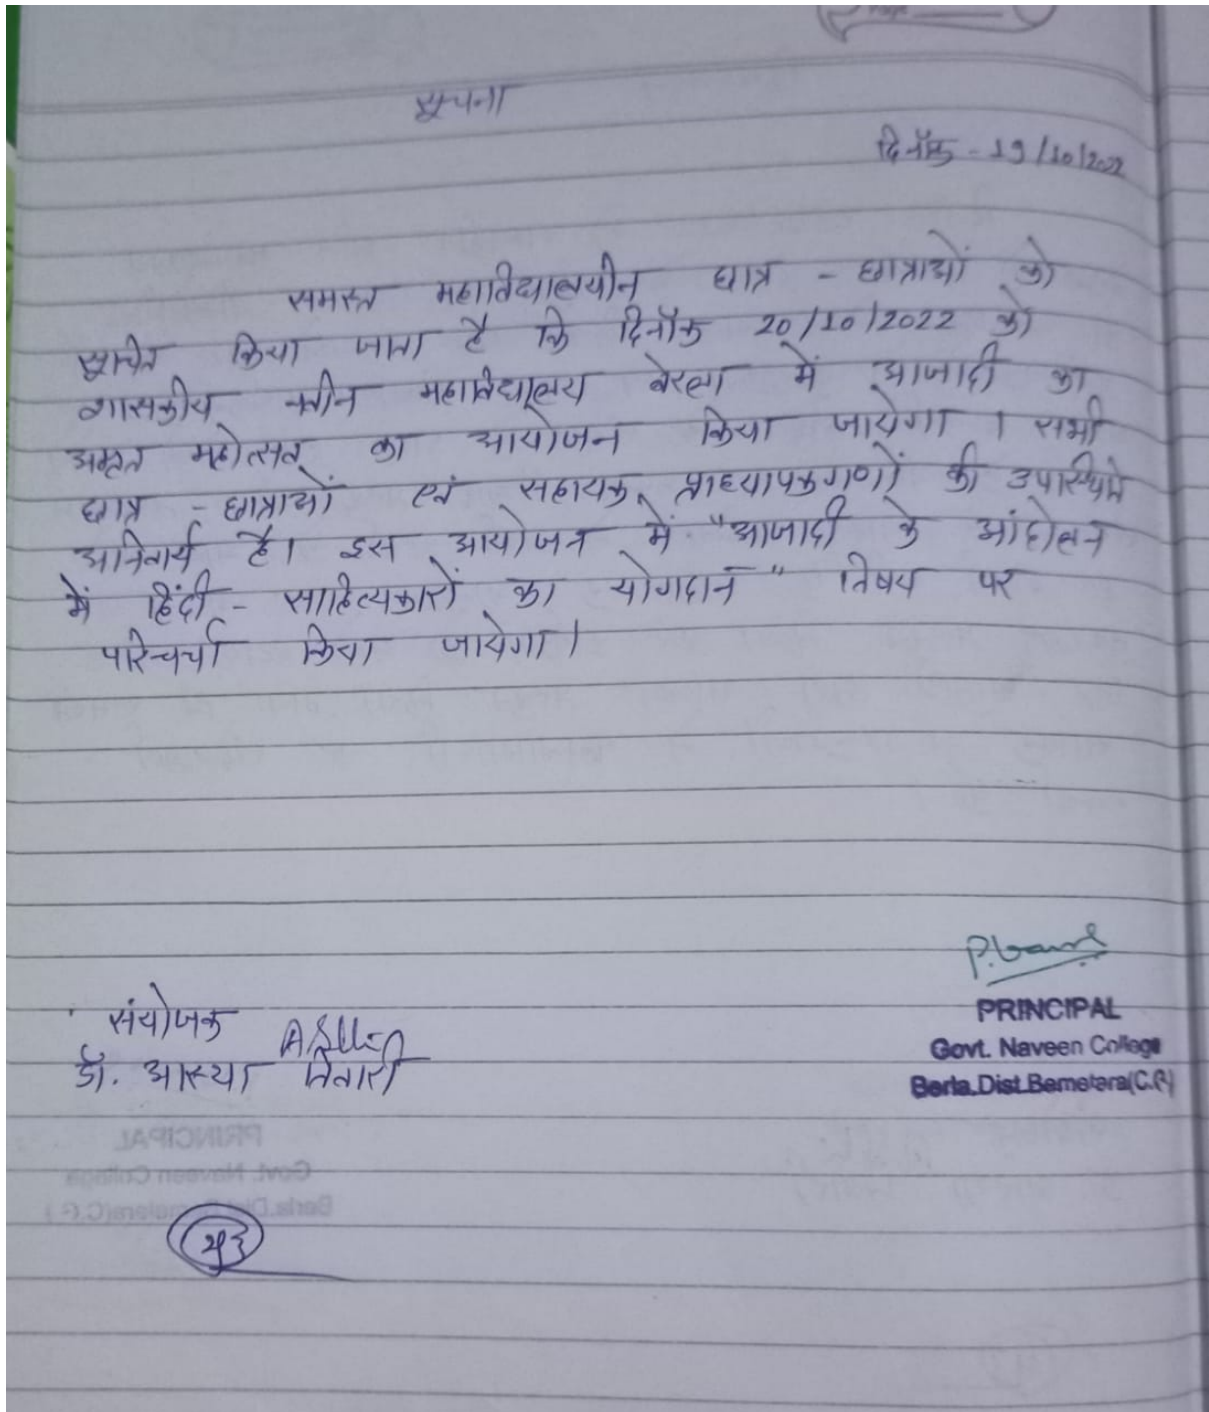 सूचना
दिनाँक - 19/10/2022
समस्त महाविद्यालयीन छात्र - छात्राओं को
सूचित किया जाता है कि दिनाँक 20/10/2022 को
शासकीय नवीन महाविद्यालय बेरला में आजादी का
अमृत महोत्सव का आयोजन किया जायेगा । सभी
छात्र - छात्राओं एवं सहायक प्राध्यापकगणों की उपस्थिति
अनिवार्य है। इस आयोजन में "आजादी के आंदोलन
में हिंदी - साहित्यकारों का योगदान" विषय पर
परिचर्चा किया जायेगा।
संयोजक
डॉ. आस्था तिवारी
PRINCIPAL
Govt. Naveen College
Berla.Dist.Bemetara(C.G)